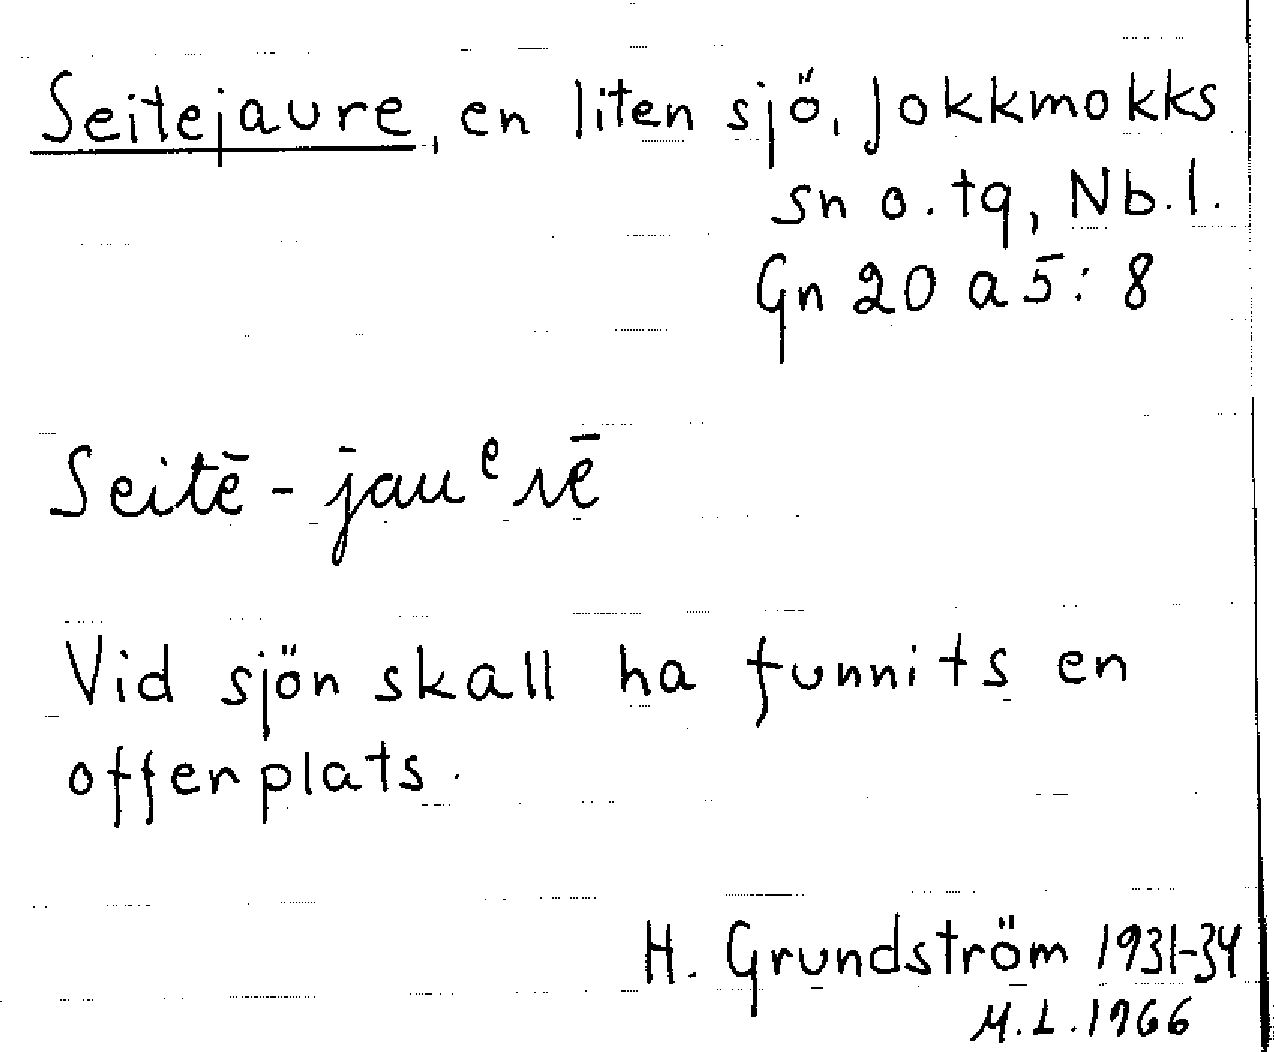 Seitejaure, en liten sjö, Jokkmokks
sn o. tg, Nb. l.
Gn 20 a 5: 8
Seitē-jauᵉrē
Vid sjön skall ha funnits en
offerplats.
H. Grundström 1931-34
M.L. 1966